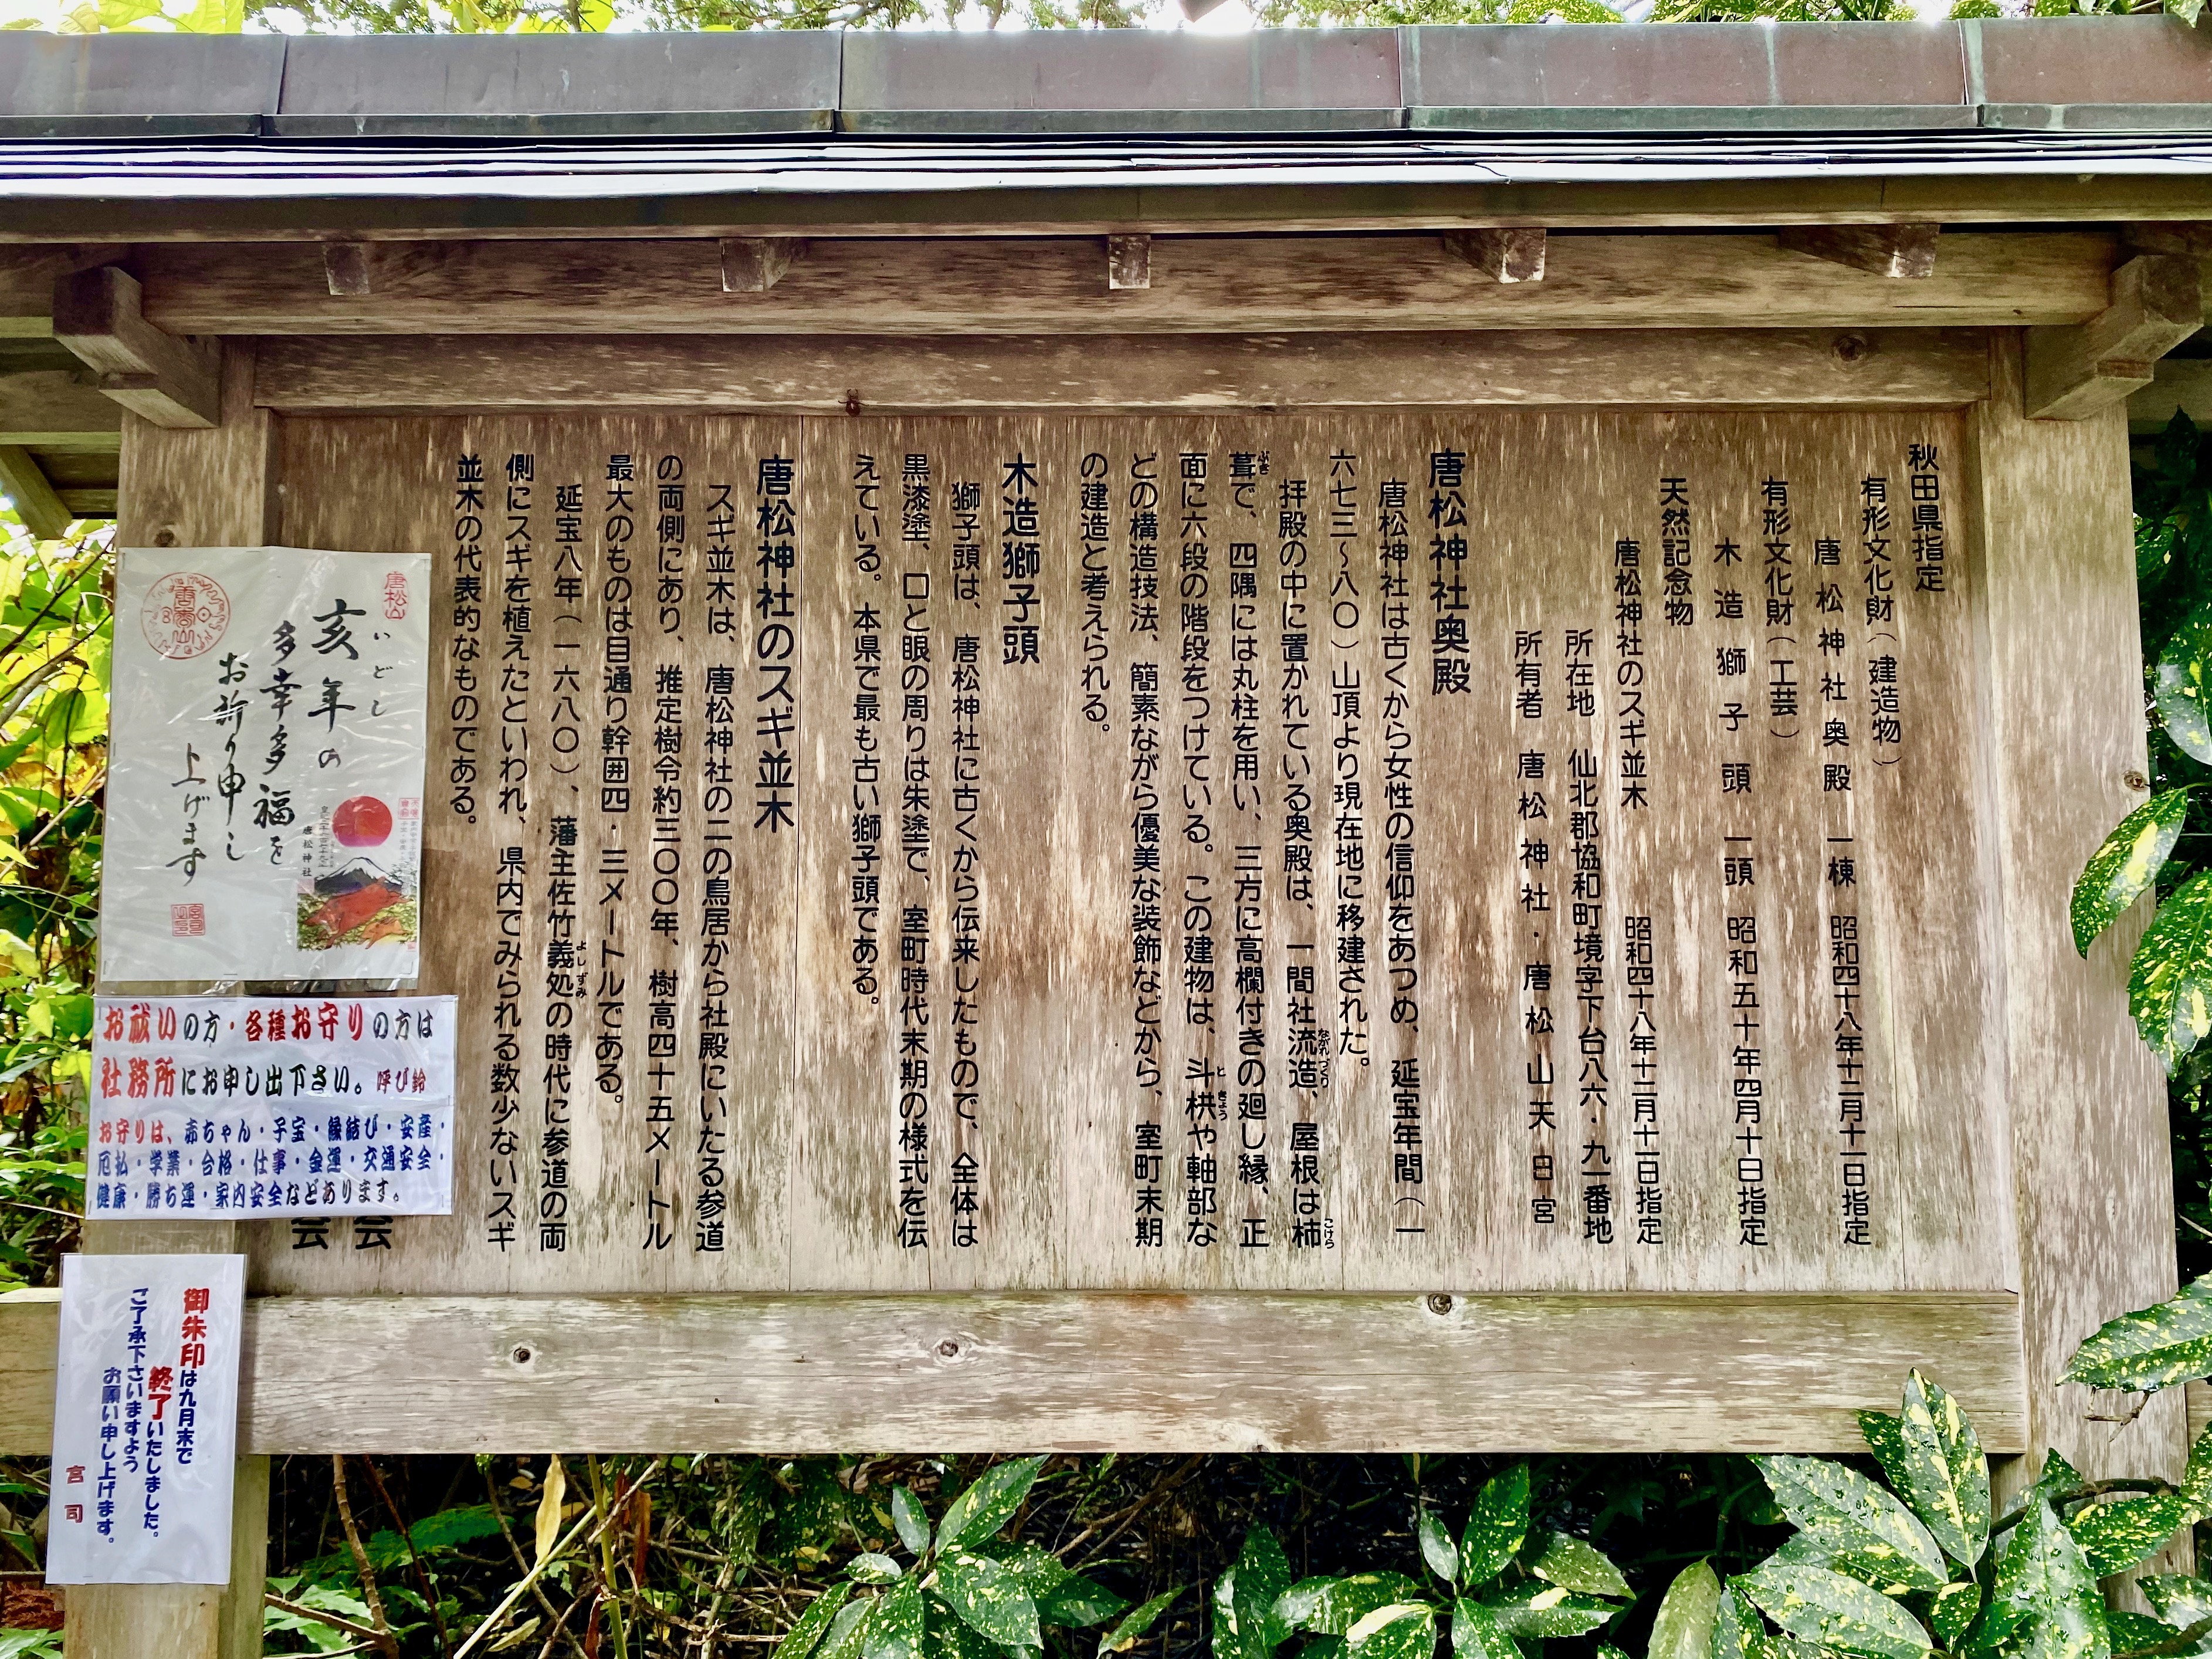 秋田県指定
有形文化財（建造物）
唐松神社奥殿 一棟 昭和四十八年十二月十一日指定
有形文化財（工芸）
木造獅子頭 一頭 昭和五十年四月十日指定
天然記念物
唐松神社のスギ並木 昭和四十八年十二月十一日指定
所在地 仙北郡協和町境字下台八六・九一番地
所有者 唐松神社・唐松山天日宮
唐松神社奥殿
唐松神社は古くから女性の信仰をあつめ、延宝年間（一
六七三〜八〇）山頂より現在地に移建された。
拝殿の中に置かれている奥殿は、一間社流造、屋根は柿
ながれづくり
こけら
葺で、四隅には丸柱を用い、三方に高欄付きの廻し縁、正
ぶき
面に六段の階段をつけている。この建物は、斗栱や軸部な
ときょう
どの構造技法、簡素ながら優美な装飾などから、室町末期
の建造と考えられる。
木造獅子頭
獅子頭は、唐松神社に古くから伝来したもので、全体は
黒漆塗、口と眼の周りは朱塗で、室町時代末期の様式を伝
えている。本県で最も古い獅子頭である。
唐松神社のスギ並木
スギ並木は、唐松神社の二の鳥居から社殿にいたる参道
の両側にあり、推定樹令約三〇〇年、樹高四十五メートル
最大のものは目通り幹囲四・三メートルである。
延宝八年（一六八〇）、藩主佐竹義処の時代に参道の両
よしずみ
側にスギを植えたといわれ、県内でみられる数少ないスギ
並木の代表的なものである。
会
会
唐松山
いどし
亥年の
多幸多福を
お祈り申し
上げます
唐松神社
お祓いの方・各種お守りの方は
社務所にお申し出下さい。呼び鈴
お守りは、赤ちゃん・子宝・縁結び・安産・
厄払・学業・合格・仕事・金運・交通安全・
健康・勝ち運・家内安全などあります。
御朱印は九月末で
終了いたしました。
ご了承下さいますよう
お願い申し上げます。
宮司